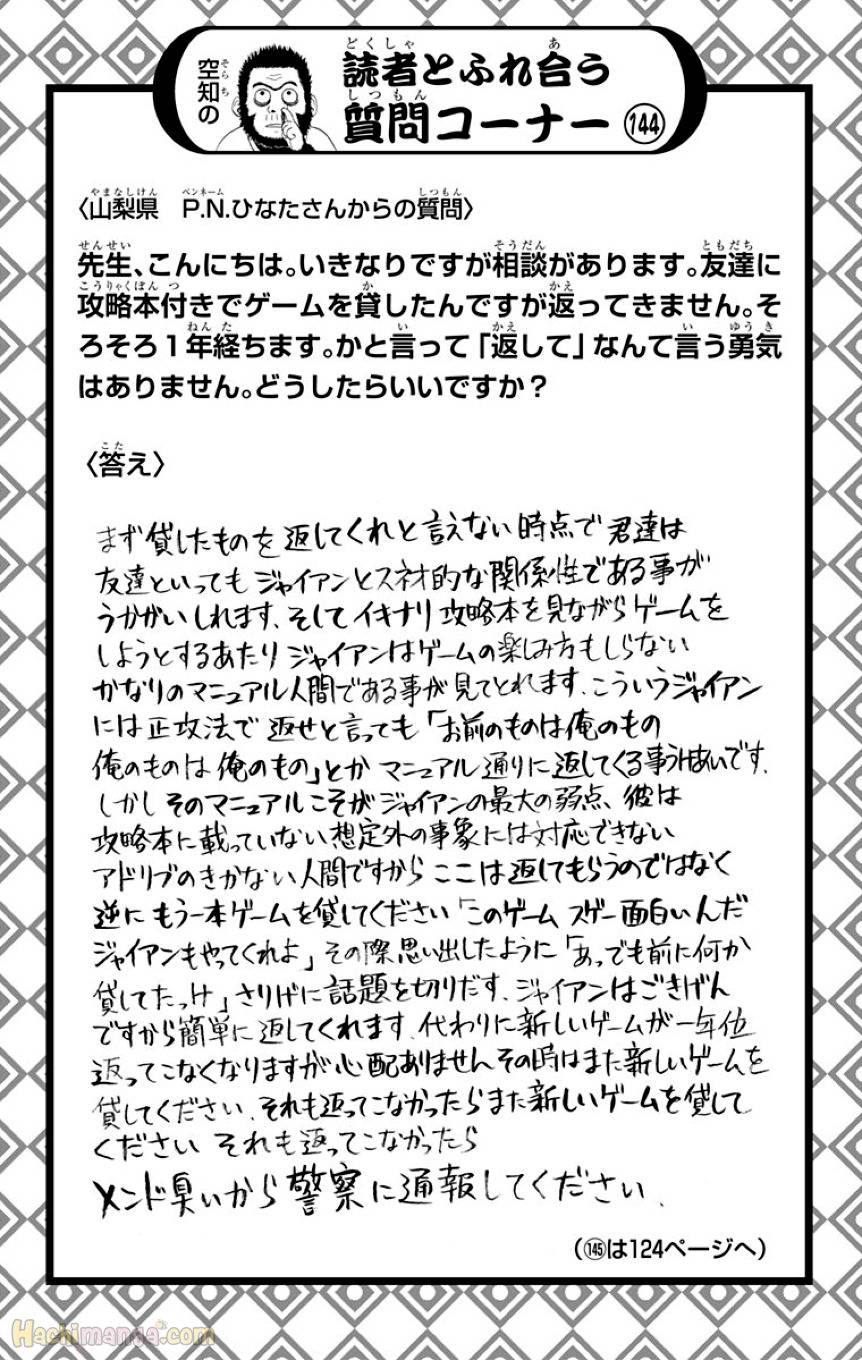 空知の
読者とふれ合う
質問コーナー 144
〈山梨県 P.N.ひなたさんからの質問〉
先生、こんにちは。いきなりですが相談があります。友達に
攻略本付きでゲームを貸したんですが返ってきません。そ
ろそろ1年経ちます。かと言って「返して」なんて言う勇気
はありません。どうしたらいいですか？
〈答え〉
まず貸したものを返してくれと言えない時点で君達は
友達といってもジャイアンとスネオ的な関係性である事が
うかがいしれます、そしてイキナリ攻略本を見ながらゲームを
しようとするあたりジャイアンはゲームの楽しみ方もしらない
かなりのマニュアル人間である事が見てとれます、こういうジャイアン
には正攻法で返せと言っても「お前のものは俺のもの
俺のものは俺のもの」とかマニュアル通りに返してくる事うけあいです、
しかしそのマニュアルこそがジャイアンの最大の弱点、彼は
攻略本に載っていない想定外の事象には対応できない
アドリブのきかない人間ですからここは返してもらうのではなく
逆にもう一本ゲームを貸してください「このゲームスゲー面白いんだ
ジャイアンもやってくれよ」その際思い出したように「あっでも前に何か
貸してたっけ」さりげに話題を切りだす、ジャイアンはごきげん
ですから簡単に返してくれます、代わりに新しいゲームが一年位
返ってこなくなりますが心配ありませんその時はまた新しいゲームを
貸してください、それも返ってこなかったらまた新しいゲームを貸して
くださいそれも返ってこなかったら
メンド臭いから警察に通報してください、
(145は124ページへ)
Hachimanga.com